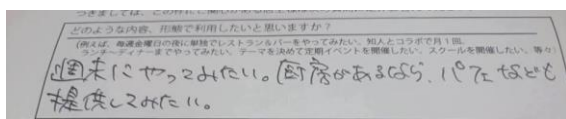 どのような内容、形態で利用したいと思いますか？
(例えば、毎週金曜日の夜に単独でレストラン&バーをやってみたい、知人とコラボで月1回、
ランチ〜ディナーまでやってみたい、テーマを決めて定期イベントを開催したい、スクールを開催したい、等々)
週末にやってみたい。厨房があるなら、パフェなども
提供してみたい。